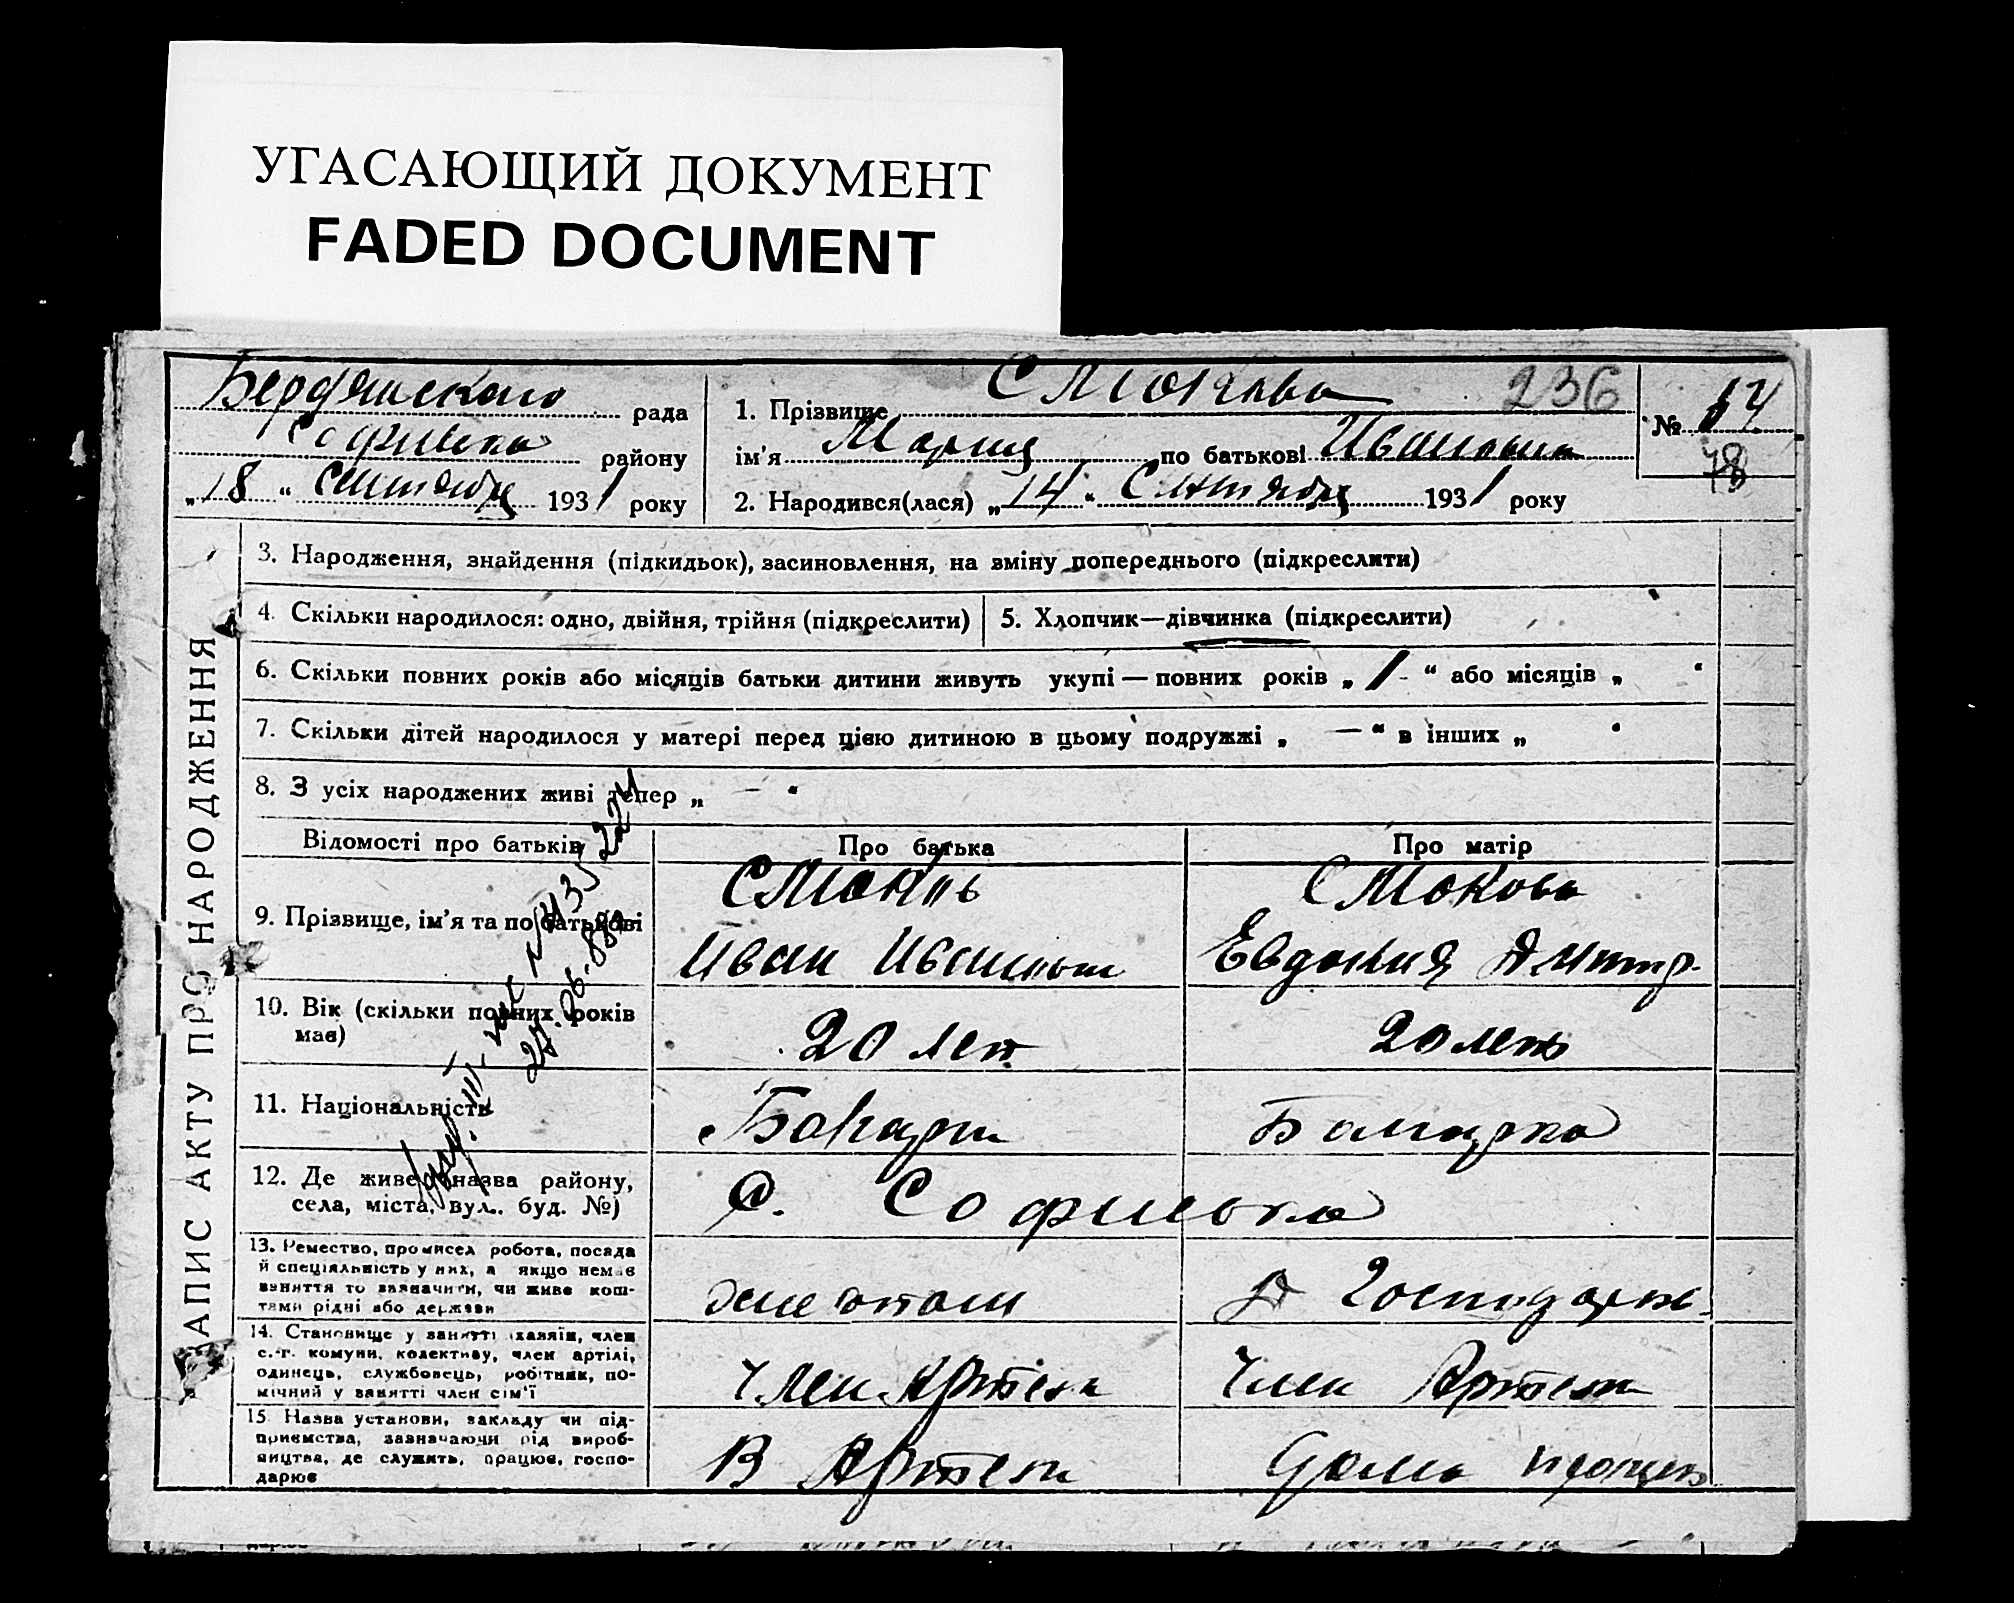 УГАСАЮЩИЙ ДОКУМЕНТ
FADED DOCUMENT
Бердянского рада
району
„18“ сентября 1931 року
1. Прізвище 236
ім'я Мария по батькові Ивановна
2. Народився(лася) „14“ Сентября 1931 року
№ 17
78
ЗАПИС АКТУ ПРО НАРОДЖЕННЯ
3. Народження, знайдення (підкидьок), засиновлення, на зміну попереднього (підкреслити)
4. Скільки народилося: одно, двійня, трійня (підкреслити)
5. Хлопчик—дівчинка (підкреслити)
6. Скільки повних років або місяців батьки дитини живуть укупі — повних років „1-“ або місяців „ “
7. Скільки дітей народилося у матері перед цією дитиною в цьому подружжі „ —“ в інших „ “
8. З усіх народжених живі тепер „ — “
Відомості про батьків
Про батька
Про матір
9. Прізвище, ім'я та по батькові
Иван Иванович
Евдокия Дмитр.
10. Вік (скільки повних років
має)
20 лет
20 летъ
11. Національність
Болгарин
Болгарка
12. Де живе (назва району,
села, міста, вул.. буд. №)
С. Софиевка
13. Ремество, промисел робота, посада
й спеціяльність у них, а якщо немає
заняття то зазначити, чи живе кош-
тами рідні або держави
14. Становище у занятті (хазяїн, член
с.-г. комуни, колективу, член артілі,
одинець, службовець, робітник, по-
мічний у занятті член сім'ї
Член Артели
Член Артели
15. Назва установи, закладу чи під-
приємства, зазначаючи рід вироб-
ництва, де служить, працює, госпо-
дарює
В Артели